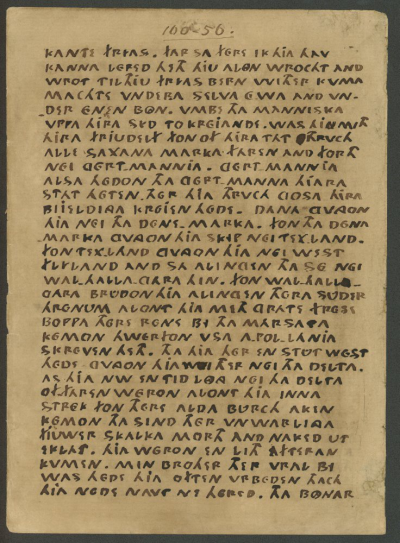 160-56.
KANTE FRYAS. FAR SA FERE IK HJA HAV
KANNA LERED HETH HJU ALON WROCHT AND
WROT TIL THJU FRYAS BERN WITHER KVMA
MACHTE VNDERA SELVA EWA AND VN-
DER ENEN BON. VMBE THA MANNISKA
VPPA HIRA SYD TO KREGJANDE. WAS HJU MITH
HIRA FRIUDELF FON OF HIRA THAT THRUCH
ALLE SAXANA MARKA FAREN AND FORTH
NEI GERT.MANNIA. GERT.MANNIA
ALSA HEDON THA GERT.MANNA HJARA
STAT HETEN. THER HJA THRUCH GOSA HIRA
BIJELDJA KREJEN HEDE. DANA GVNGON
HJA NEI THA DENE.MARKA. FON THA DENA
MARKA GVNGON HJA SKIP NEI TEXLAND.
FON TEXLAND GVNGON HJA NEI WEST
FLYLAND AND SA ALINGEN THA SE NEI
WAL.HALLA.GARA HIN. FON WALHALLA-
GARA BRUDON HJA ALINGEN THERA SUDER
HRENUM ALONT HJA MITH GRATE FREESE
BOPPA THERE RENE BI THA MARSATA
KEMON HWERFON VSA APOLLANIA
SKREVEN HETH. THA HJA THER EN STUT WEST
HEDE GVNGON HJA WITHER NEI THA DELTA.
AS HJA NW EN TID LONG NEI THA DELTA
OFFAREN WERON ALONT HJA INNA
STREK FON THERE ALDA BURCH AKEN
KEMON THA SIND THER UNWARLINGA
FJUWER SKALKA MORTH AND NAKED UT
EKLAT. HJA WERON EN LITH AFTERAN
KUMEN. MIN BROTHER THER VRAL BI
WAS HEDE HJA OFTEN VRBEDEN THACH
HJA NEDE NAVT NI HERED. THA BONAR